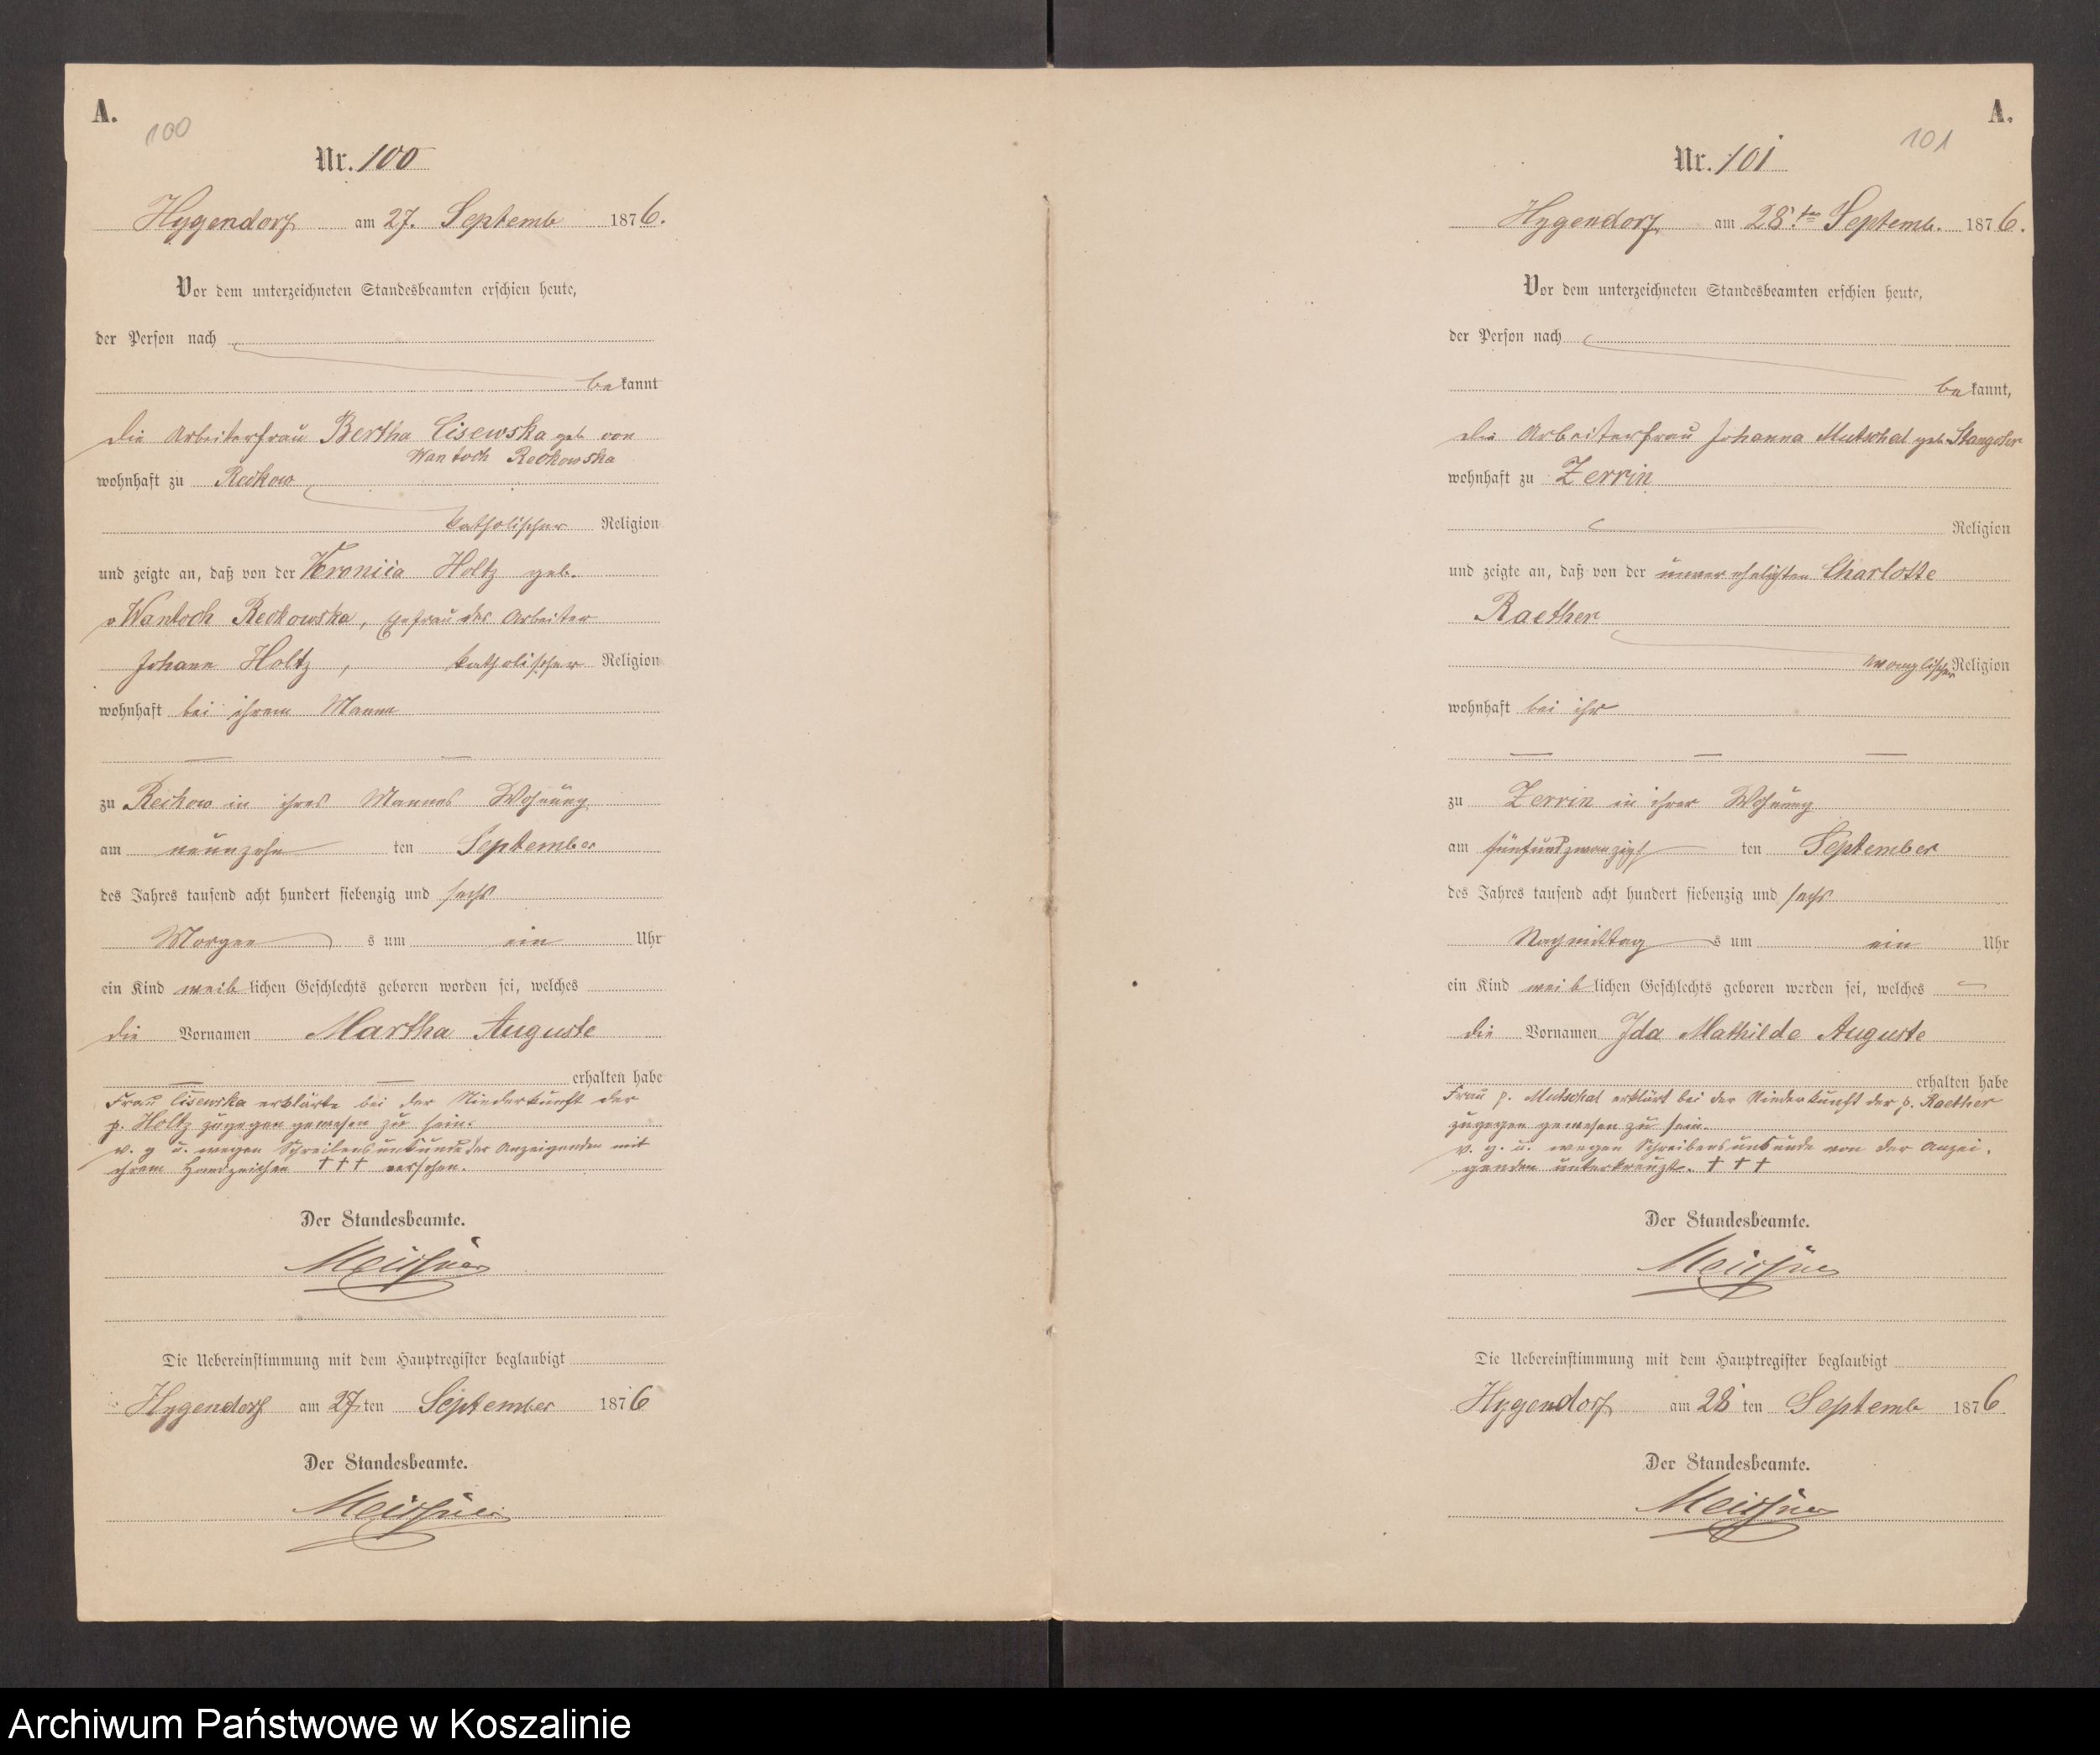 A.
100
Nr. 100
Hygendorf am 27. Septemb 1876.
Vor dem unterzeichneten Standesbeamten erschien heute,
der Person nach
bekannt
die Arbeiterfrau Bertha Cisewska geb. von
Wantoch Reckowska
wohnhaft zu Reckow
katholischer Religion
und zeigte an, daß von der Veronica Holtz geb.
v Wantoch Reckowska, Ehefrau des Arbeiter
Johann Holtz, katholischer Religion
wohnhaft bei ihrem Manne
zu Reckow in ihres Mannes Wohnung
am neunzehn ten September
des Jahres tausend acht hundert siebenzig und sechs
Morgen s um ein Uhr
ein Kind weiblichen Geschlechts geboren worden sei, welches
die Vornamen Martha Auguste
erhalten habe
Frau Cisewska erklärte bei der Niederkunft der
p. Holtz zugegen gewesen zu sein.
v. g u. wegen Schreibensunkunde der Anzeigenden mit
ihrem Handzeichen † † † versehen.
Der Standesbeamte.
Meissner
Die Uebereinstimmung mit dem Hauptregister beglaubigt
Hygendorf am 27ten September 1876
Der Standesbeamte.
Meissner
A.
101
Nr. 101
Hygendorf am 28.ten Septemb. 1876.
Vor dem unterzeichneten Standesbeamten erschien heute,
der Person nach
bekannt,
die Arbeiterfrau Johanna Mutschal geb.
wohnhaft zu Zerrin
Religion
und zeigte an, daß von der unverehelichten Charlotte
Raether
evanglischer Religion
wohnhaft bei ihr
zu Zerrin in ihrer Wohnung
am fünfundzwanzigst ten September
des Jahres tausend acht hundert siebenzig und sechs
Nachmittag s um ein Uhr
ein Kind weiblichen Geschlechts geboren worden sei, welches
die Vornamen Ida Mathilde Auguste
erhalten habe
Frau p. Mutschal erklärt bei der Niederkunft der p. Raether
zugegen gewesen zu sein.
v. g. u. wegen Schreibensunkunde von der Anzei-
genden unterkreuzt. † † †
Der Standesbeamte.
Meissner
Die Uebereinstimmung mit dem Hauptregister beglaubigt
Hygendorf am 28 ten Septemb 1876
Der Standesbeamte.
Meissner
Archiwum Państwowe w Koszalinie